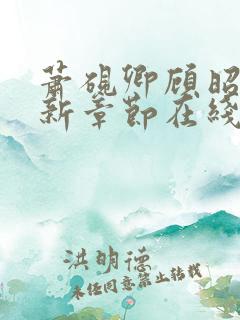 萧砚卿顾昭
新章节在线
洪明德
未经同意禁止转载